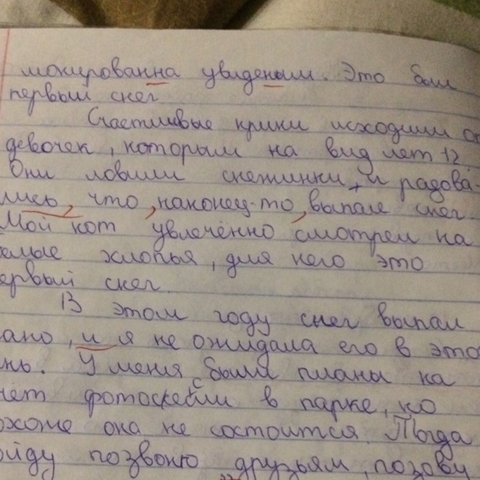 мокированна увиденым. Это был
первый снег.
Счастливые крики исходили от
девочек, которым на вид лет 12.
Они ловили снежинки, и радова-
лись, что, наконец-то, выпал снег.
Мой кот увлечённо смотрел на
белые хлопья, для него это
первый снег.
В этом году снег выпал
рано, и я не ожидала его в это
нь. У меня были планы на
чёт фотосесии в парке, но
охоже она не состоится. Тогда
ойду позвоню друзьям, позову